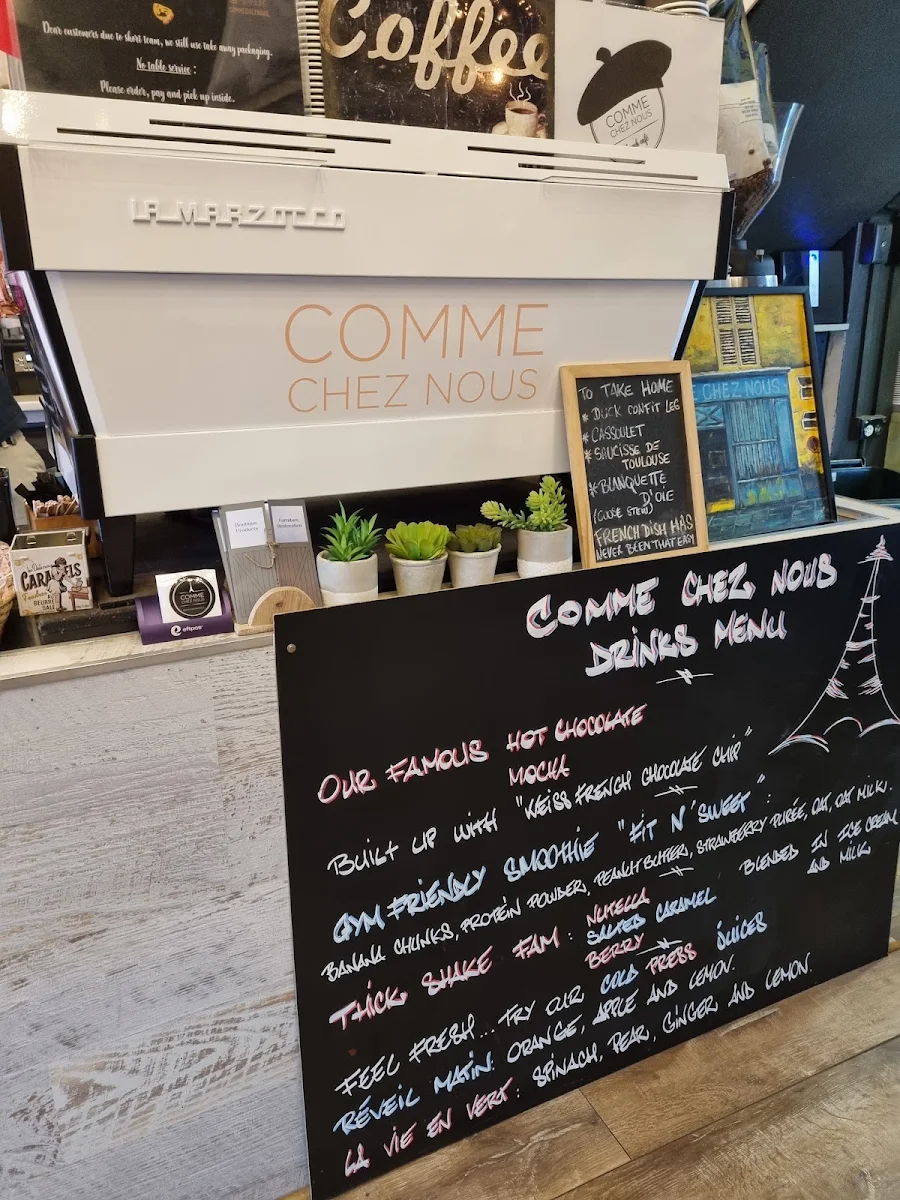 Dear customers due to short team, we still use take away packaging.
No table service :
Please order, pay and pick up inside.
Coffee
COMME
CHEZ NOUS
LA MARZOCCO
COMME
CHEZ NOUS
TO TAKE HOME
* DUCK CONFIT LEG
* CASSOULET
* SAUCISSE DE
TOULOUSE
* BLANQUETTE
D'OIE
(GOOSE STEW)
FRENCH DISH HAS
NEVER BEEN THAT EASY
CHEZ NOUS
CARAMELS
COMME
CHEZ NOUS
eftpos
COMME CHEZ NOUS
DRINKS MENU
OUR FAMOUS HOT CHOCOLATE
MOCHA
BUILT UP WITH "WEISS FRENCH CHOCOLATE CHIP"
GYM FRIENDLY SMOOTHIE "FIT N' SWEET" :
BANANA CHUNKS, PROTEIN POWDER, PEANUT BUTTER, STRAWBERRY PURÉE, OAT, OAT MILK.
THICK SHAKE FAM : NUTELLA
SALTED CARAMEL
BERRY
BLENDED IN ICE CREAM
AND MILK
FEEL FRESH... TRY OUR COLD PRESS JUICES
RÉVEIL MATIN: ORANGE, APPLE AND LEMON.
LA VIE EN VERT : SPINACH, PEAR, GINGER AND LEMON.